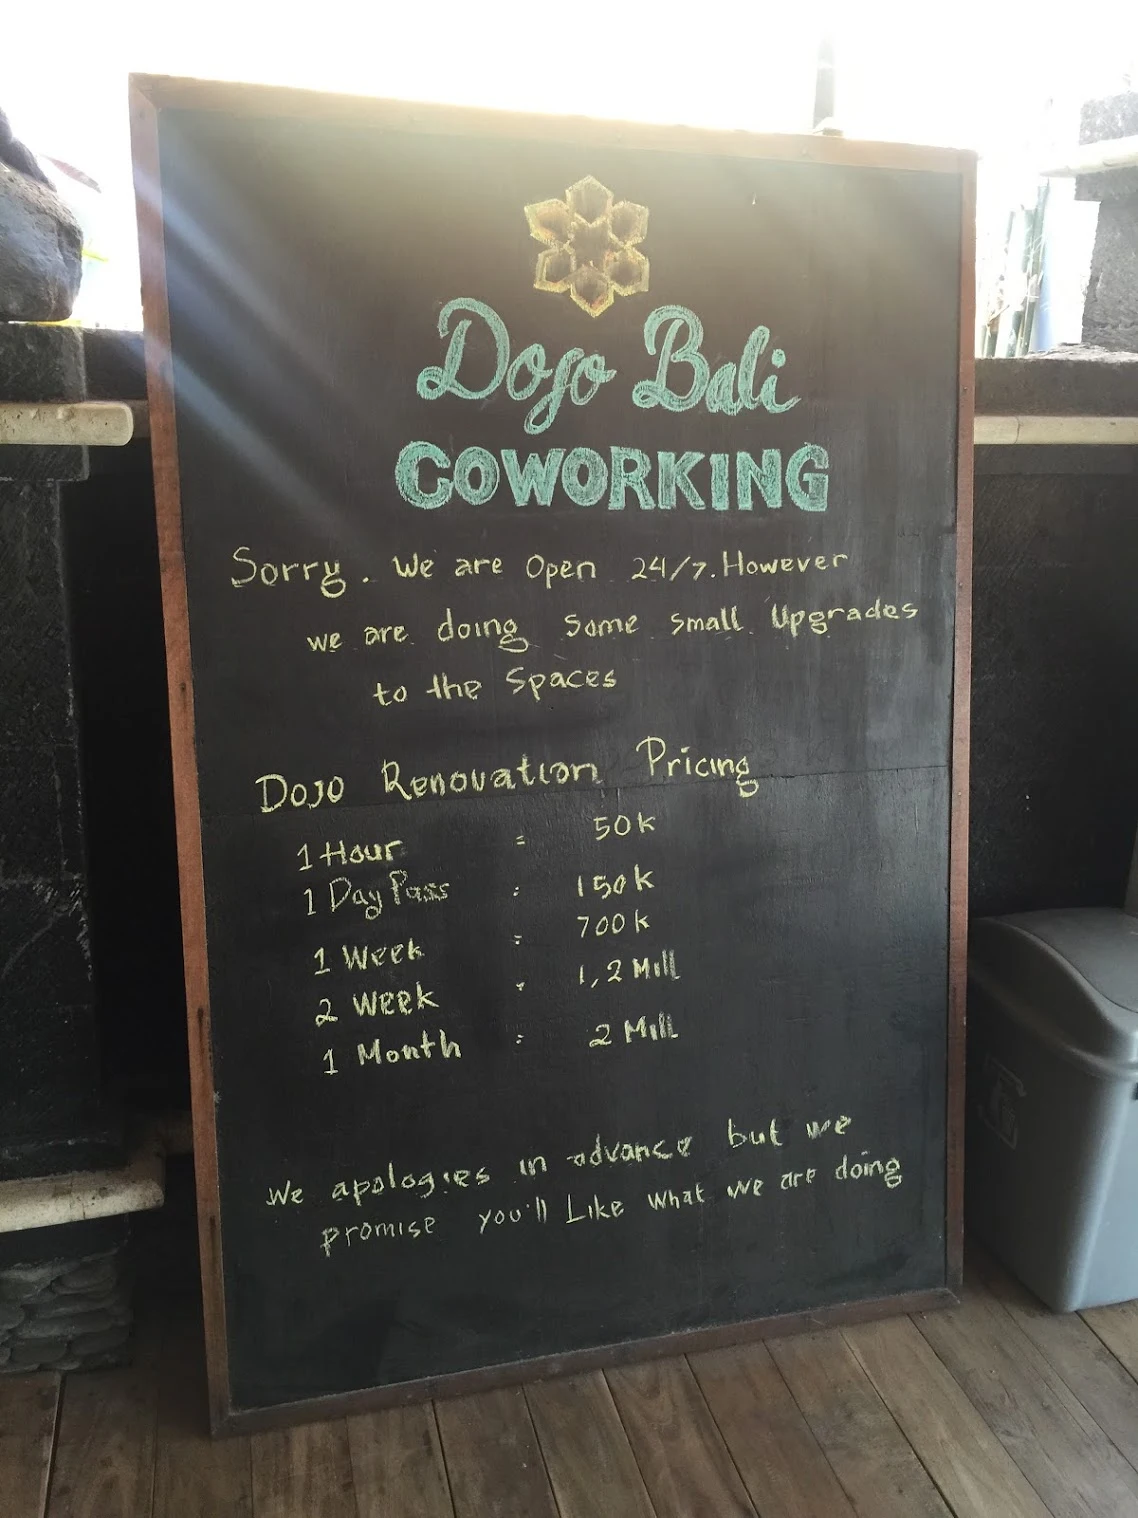 Dojo Bali
COWORKING
Sorry. We are Open 24/7. However
we are doing Some small Upgrades
to the Spaces
DOJO Renovation Pricing
1 Hour = 50k
1 Day Pass : 150k
1 Week : 700k
2 Week : 1,2 Mill
1 Month : 2 Mill
We apologies in advance but we
promise you'll Like what we are doing